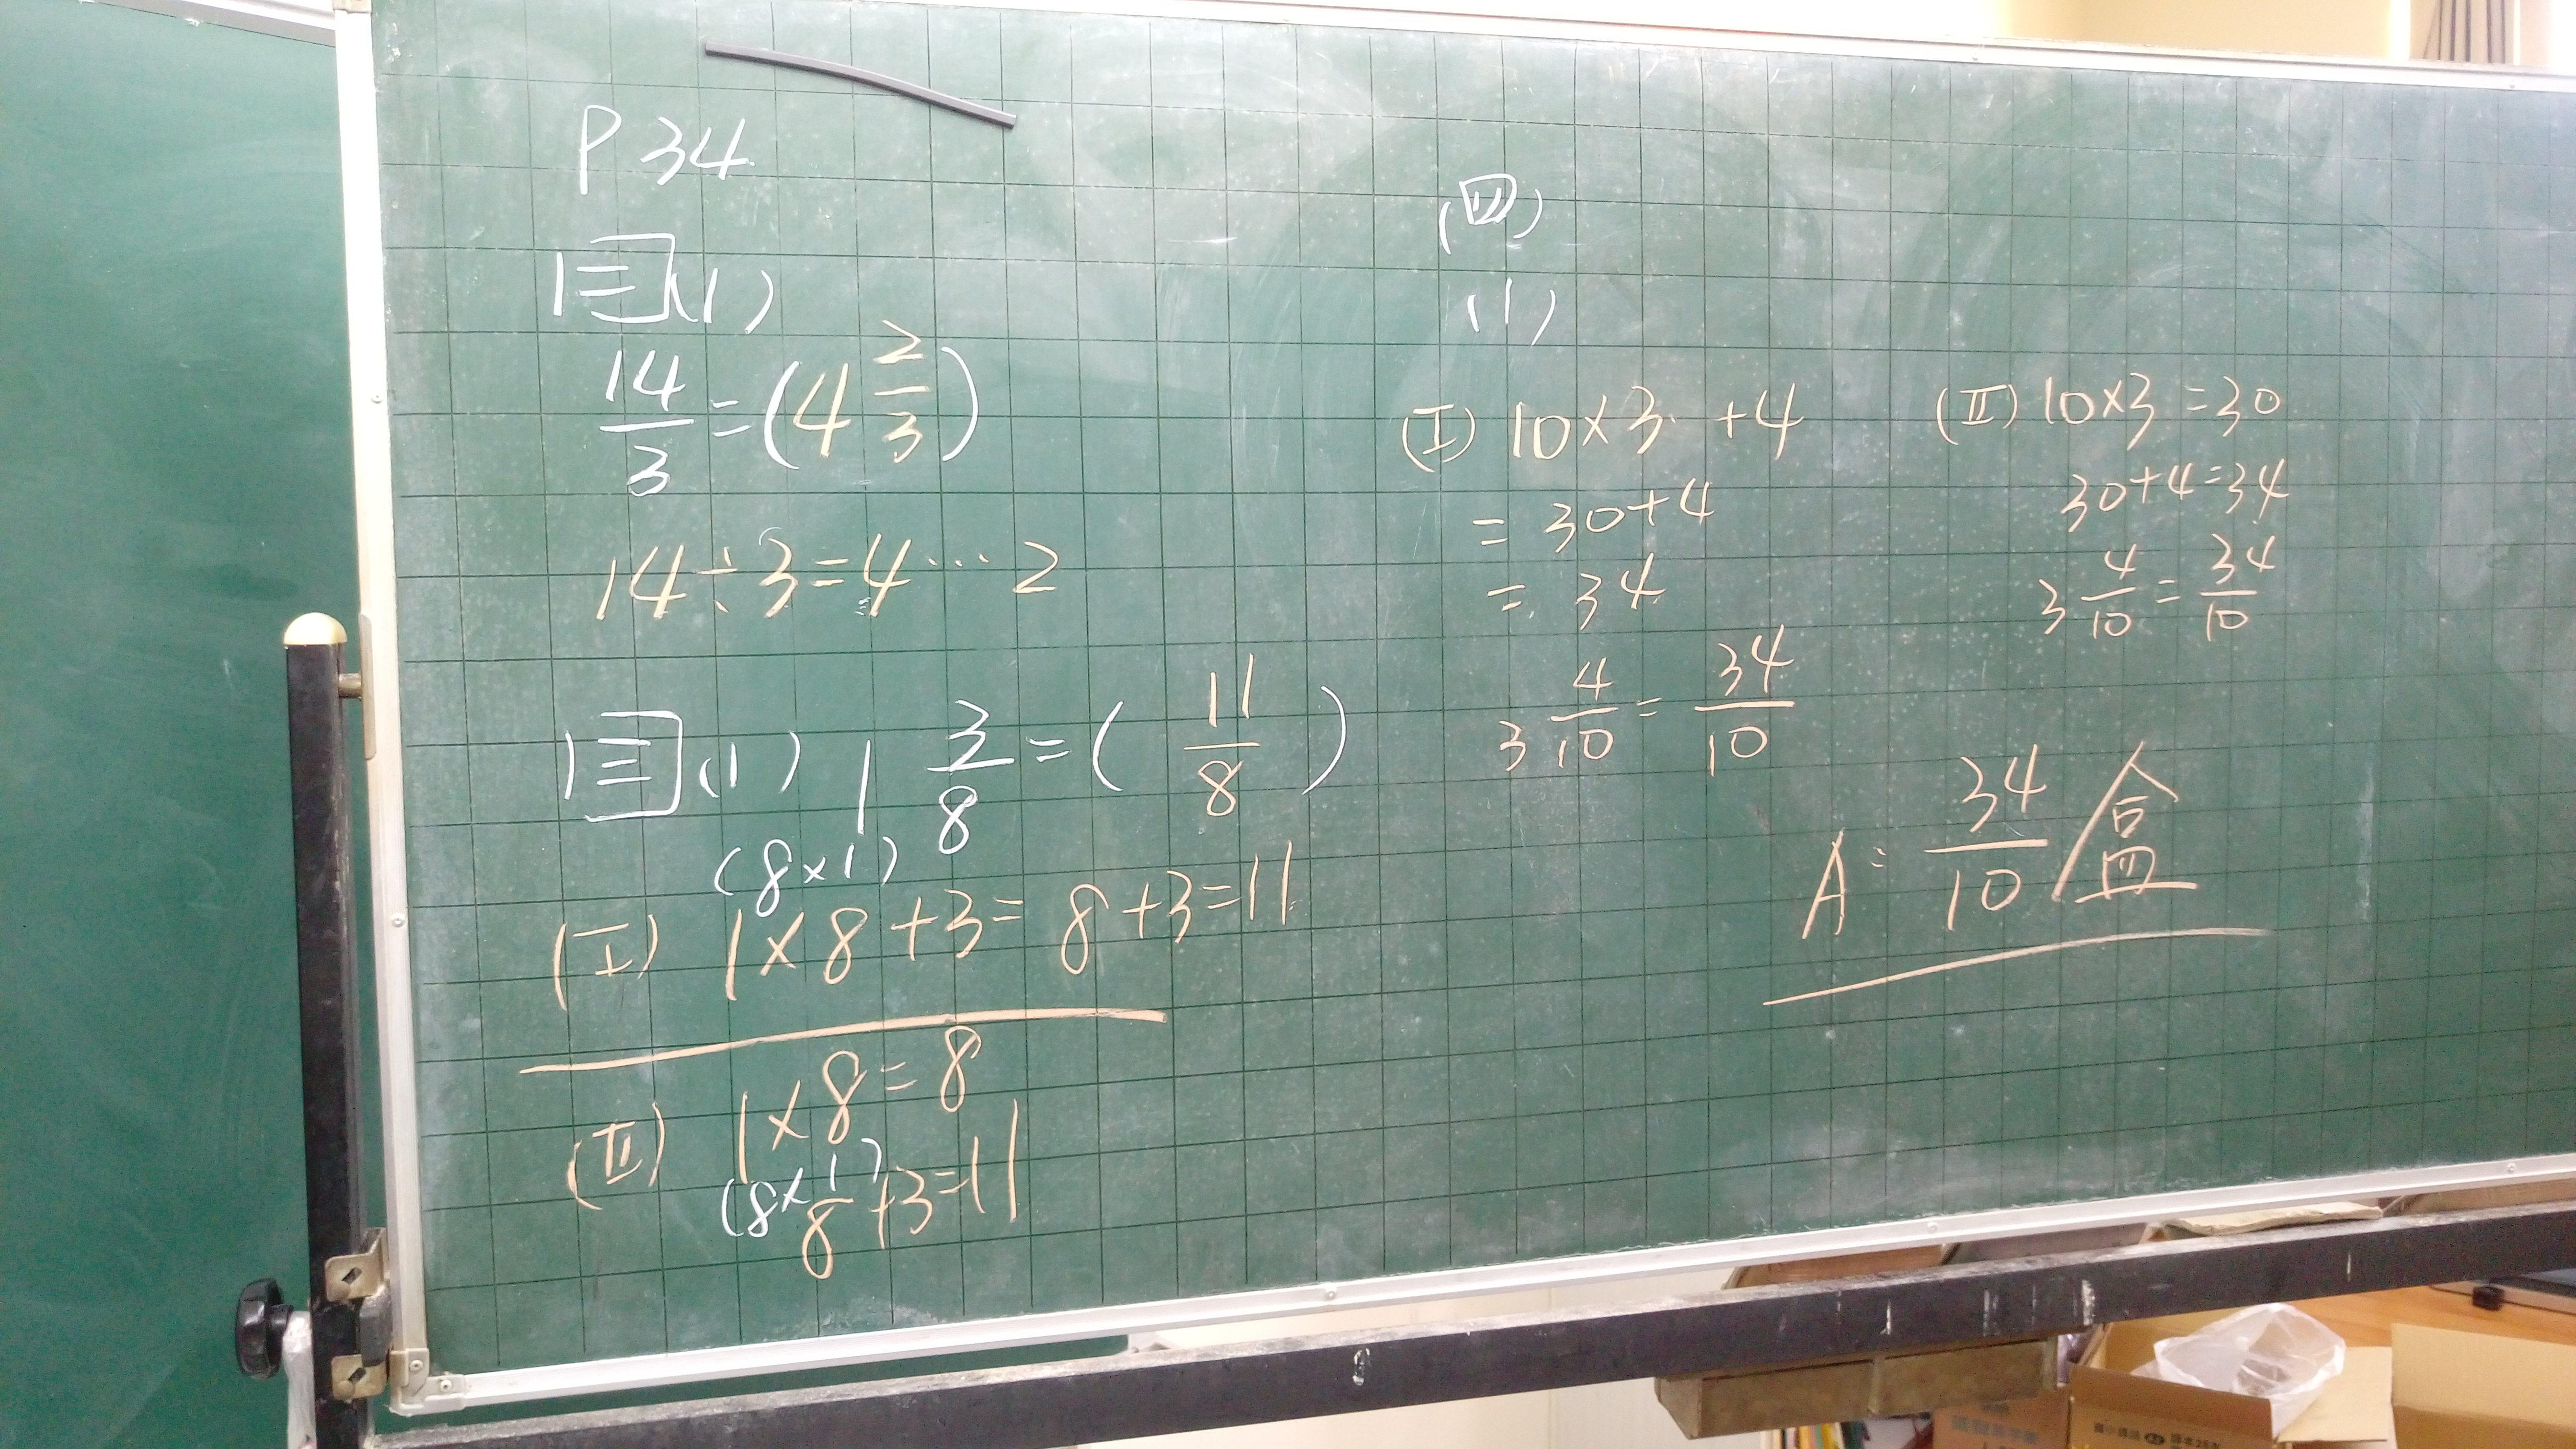 P34
(三)(1)
14/3=(4 2/3)
14÷3=4…2
(三)(1) 1 3/8=( 11/8 )
(8×1)
(I) 1×8+3=8+3=11
(II) 1×8=8
(8×1)
8+3=11
(四)
(1)
(I) 10×3+4
= 30+4
= 34
3 4/10=34/10
(II) 10×3=30
30+4=34
3 4/10=34/10
A: 34/10 盒